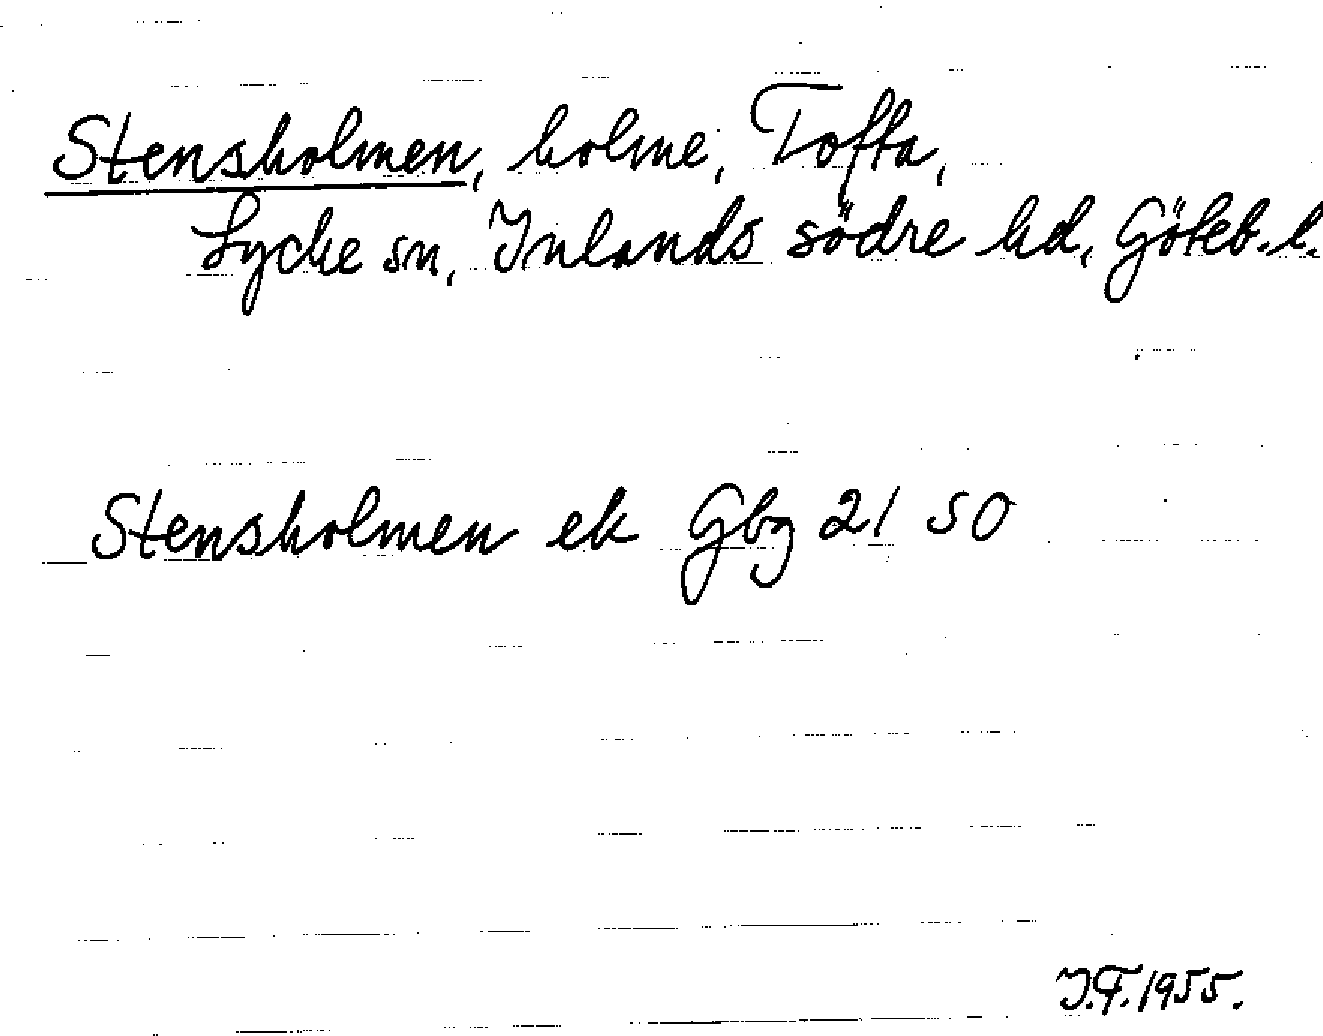 Stensholmen, holme, Tofta,
Lycke sn, Inlands södre hd, Göteb. l.
Stensholmen ek Gbg 21 50
I.F. 1955.